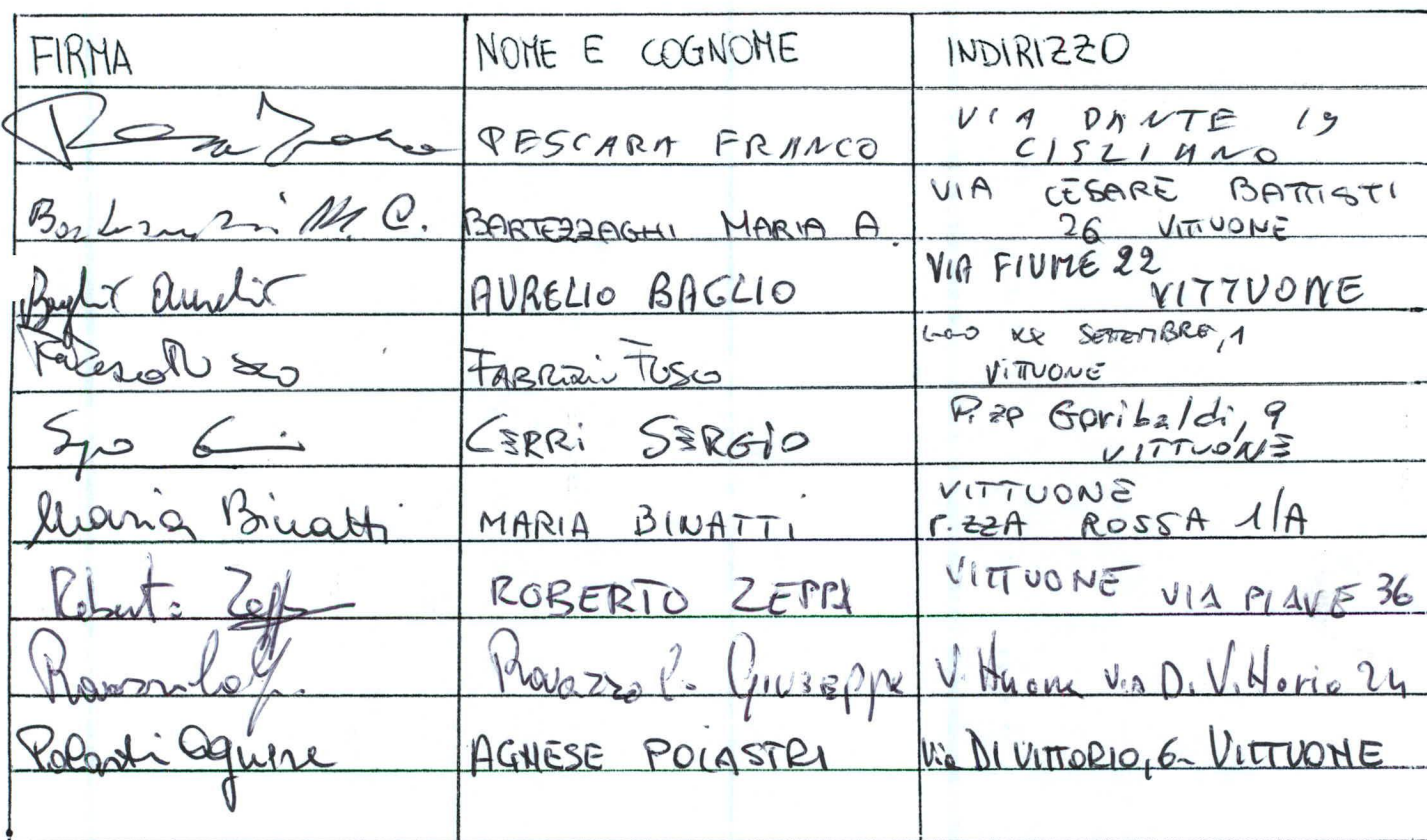 FIRMA NOME E COGNOME INDIRIZZO
PESCARA FRANCO VIA DANTE 19
CISLIANO
M. C. BARTEZZAGHI MARIA A. VIA CESARE BATTISTI
26 VITTUONE
Baglio Aurelio AURELIO BAGLIO VIA FIUME 22
VITTUONE
FABRIZIO TOSCO XX SETTEMBRE, 1
VITTUONE
CERRI SERGIO P.zza Garibaldi, 9
VITTUONE
Maria Binatti MARIA BINATTI VITTUONE
P.ZZA ROSSA 1/A
Roberto Zeppa ROBERTO ZEPPA VITTUONE VIA PIAVE 36
Giuseppe Vittuone Via Di Vittorio 24
AGNESE POLASTRI Via DI VITTORIO, 6 - VITTUONE